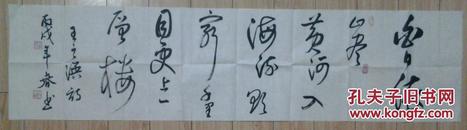 白日依
山尽
黄河入
海流欲
窮千里
目更上一
層樓
王之涣詩
丙戌年春书
孔夫子旧书网